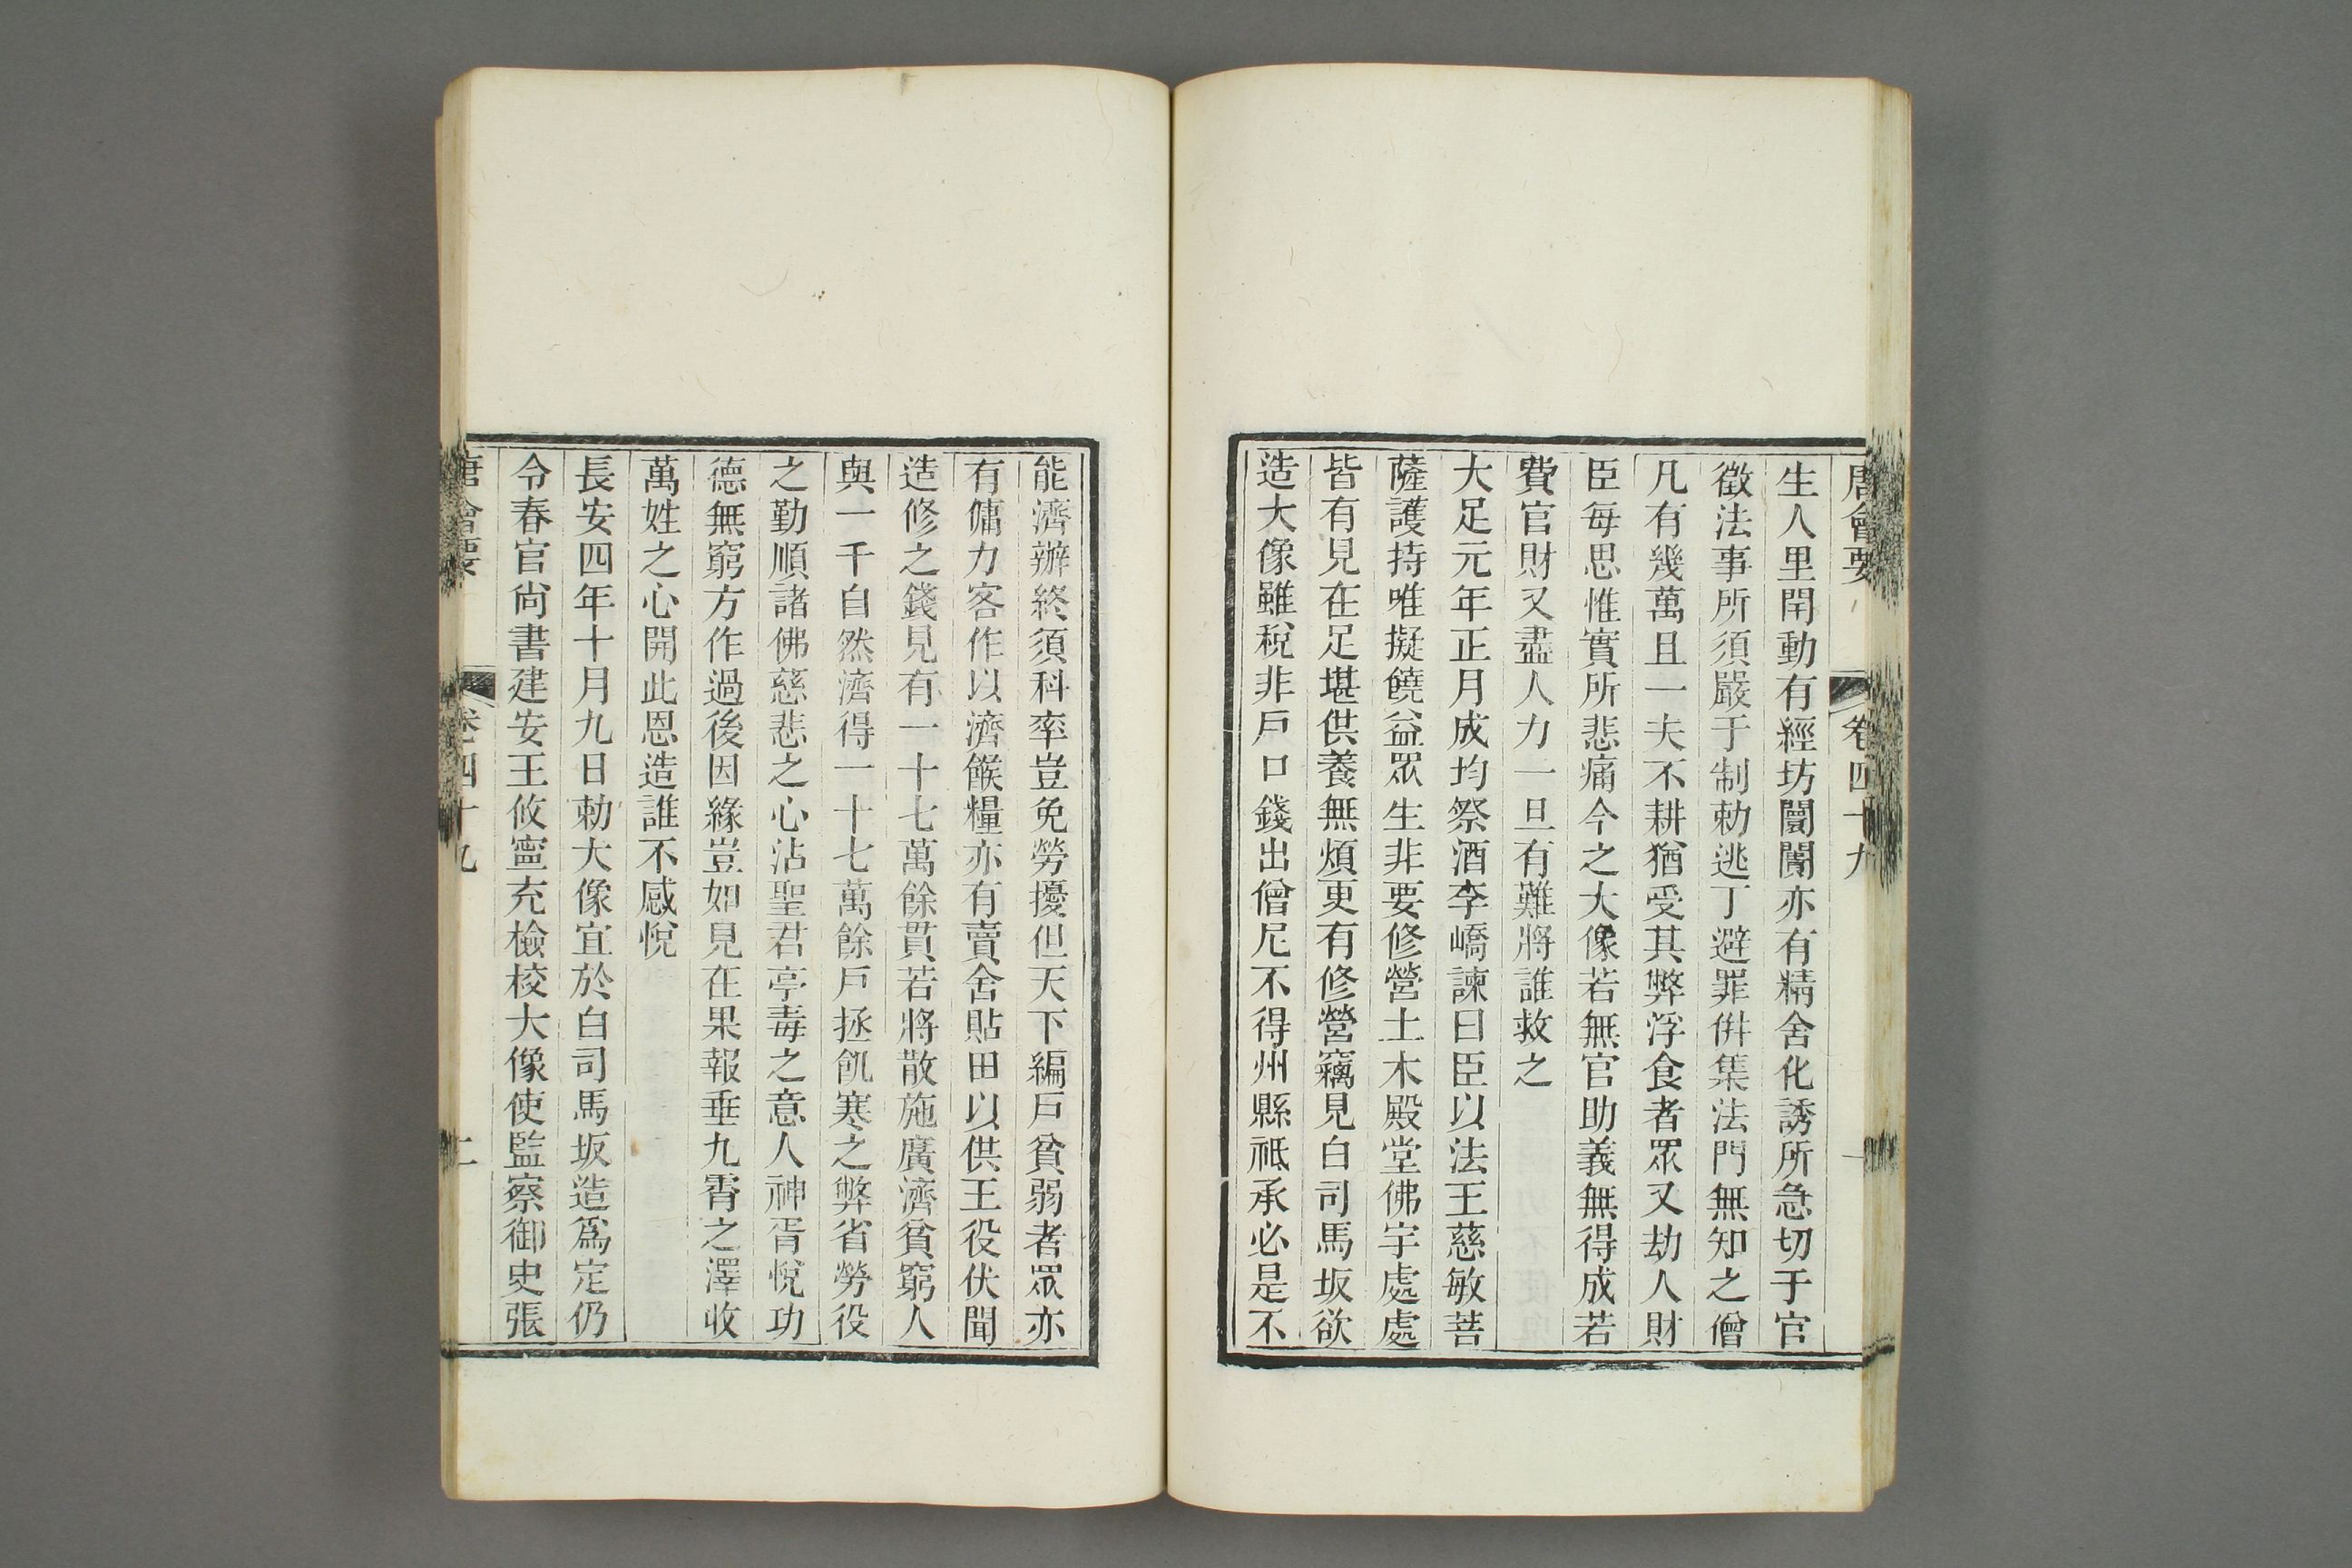 唐會要 卷四十九 一
生人里閈動有經坊闤闠亦有精舍化誘所急切于官
徵法事所須嚴于制勅逃丁避罪倂集法門無知之僧
凡有幾萬且一夫不耕猶受其弊浮食者眾又劫人財
臣每思惟實所悲痛今之大像若無官助義無得成若
費官財又盡人力一旦有難將誰救之
大足元年正月成均祭酒李嶠諫曰臣以法王慈敏菩
薩護持唯擬饒益眾生非要修營土木殿堂佛宇處處
皆有見在足堪供養無煩更有修營竊見白司馬坂欲
造大像雖稅非戶口錢出僧尼不得州縣祗承必是不
能濟辦終須科率豈免勞擾但天下編戶貧弱者眾亦
有傭力客作以濟餱糧亦有賣舍貼田以供王役伏聞
造修之錢見有一十七萬餘貫若將散施廣濟貧窮人
與一千自然濟得一十七萬餘戶拯飢寒之弊省勞役
之勤順諸佛慈悲之心沾聖君亭毒之意人神胥悅功
德無窮方作過後因緣豈如見在果報垂九霄之澤收
萬姓之心開此恩造誰不感悅
長安四年十月九日勅大像宜於白司馬坂造爲定仍
令春官尙書建安王攸寍充檢校大像使監察御史張
唐會要 卷四十九 二